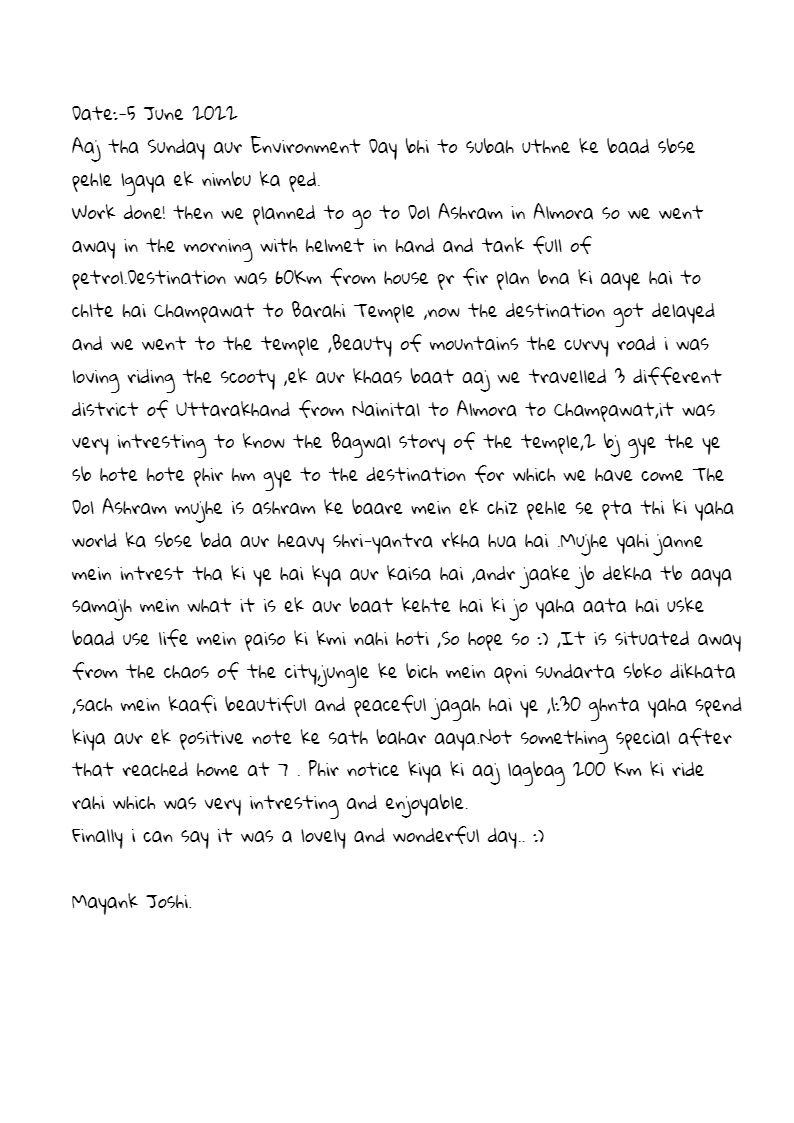 Date:-5 June 2022
Aaj tha Sunday aur Environment Day bhi to subah uthne ke baad sbse
pehle lgaya ek nimbu ka ped.
Work done! then we planned to go to Dol Ashram in Almora so we went
away in the morning with helmet in hand and tank full of
petrol.Destination was 60Km from house pr fir plan bna ki aaye hai to
chlte hai Champawat to Barahi Temple ,now the destination got delayed
and we went to the temple ,Beauty of mountains the curvy road i was
loving riding the scooty ,ek aur khaas baat aaj we travelled 3 different
district of Uttarakhand from Nainital to Almora to Champawat,it was
very intresting to know the Bagwal story of the temple,2 bj gye the ye
sb hote hote phir hm gye to the destination for which we have come The
Dol Ashram mujhe is ashram ke baare mein ek chiz pehle se pta thi ki yaha
world ka sbse bda aur heavy shri-yantra rkha hua hai .Mujhe yahi janne
mein intrest tha ki ye hai kya aur kaisa hai ,andr jaake jb dekha tb aaya
samajh mein what it is ek aur baat kehte hai ki jo yaha aata hai uske
baad use life mein paiso ki kmi nahi hoti ,So hope so :) ,It is situated away
from the chaos of the city,jungle ke bich mein apni sundarta sbko dikhata
,sach mein kaafi beautiful and peaceful jagah hai ye ,1:30 ghnta yaha spend
kiya aur ek positive note ke sath bahar aaya.Not something special after
that reached home at 7 . Phir notice kiya ki aaj lagbag 200 Km ki ride
rahi which was very intresting and enjoyable.
Finally i can say it was a lovely and wonderful day.. :)
Mayank Joshi.